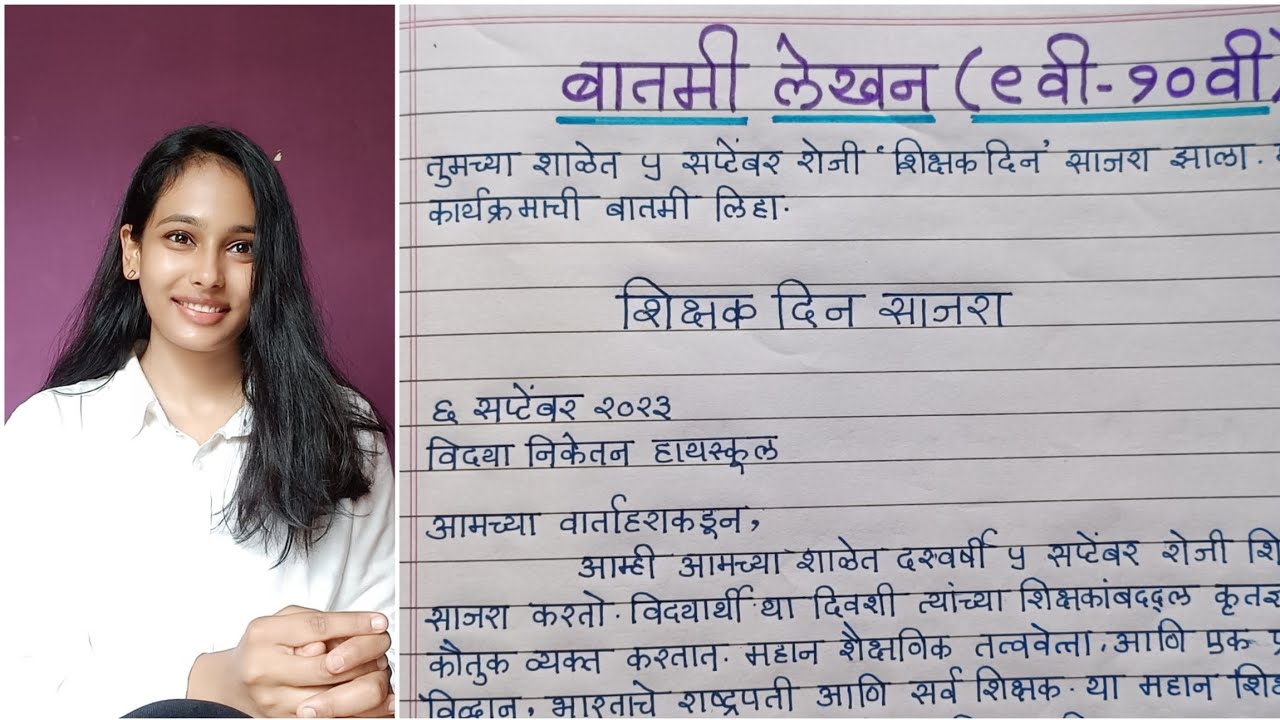 बातमी लेखन (९वी-१०वी)
तुमच्या शाळेत ५ सप्टेंबर रोजी 'शिक्षक दिन' साजरा झाला.
कार्यक्रमाची बातमी लिहा.
शिक्षक दिन साजरा
६ सप्टेंबर २०२३
विदया निकेतन हायस्कूल
आमच्या वार्ताहराकडून,
आम्ही आमच्या शाळेत दरवर्षी ५ सप्टेंबर रोजी
साजरा करतो. विदयार्थी या दिवशी त्यांच्या शिक्षकांबददल
कौतुक व्यक्त करतात. महान शैक्षणिक तत्ववेत्ता, आणि एक
विद्वान, भारताचे राष्ट्रपती आणि सर्व शिक्षक. या महान